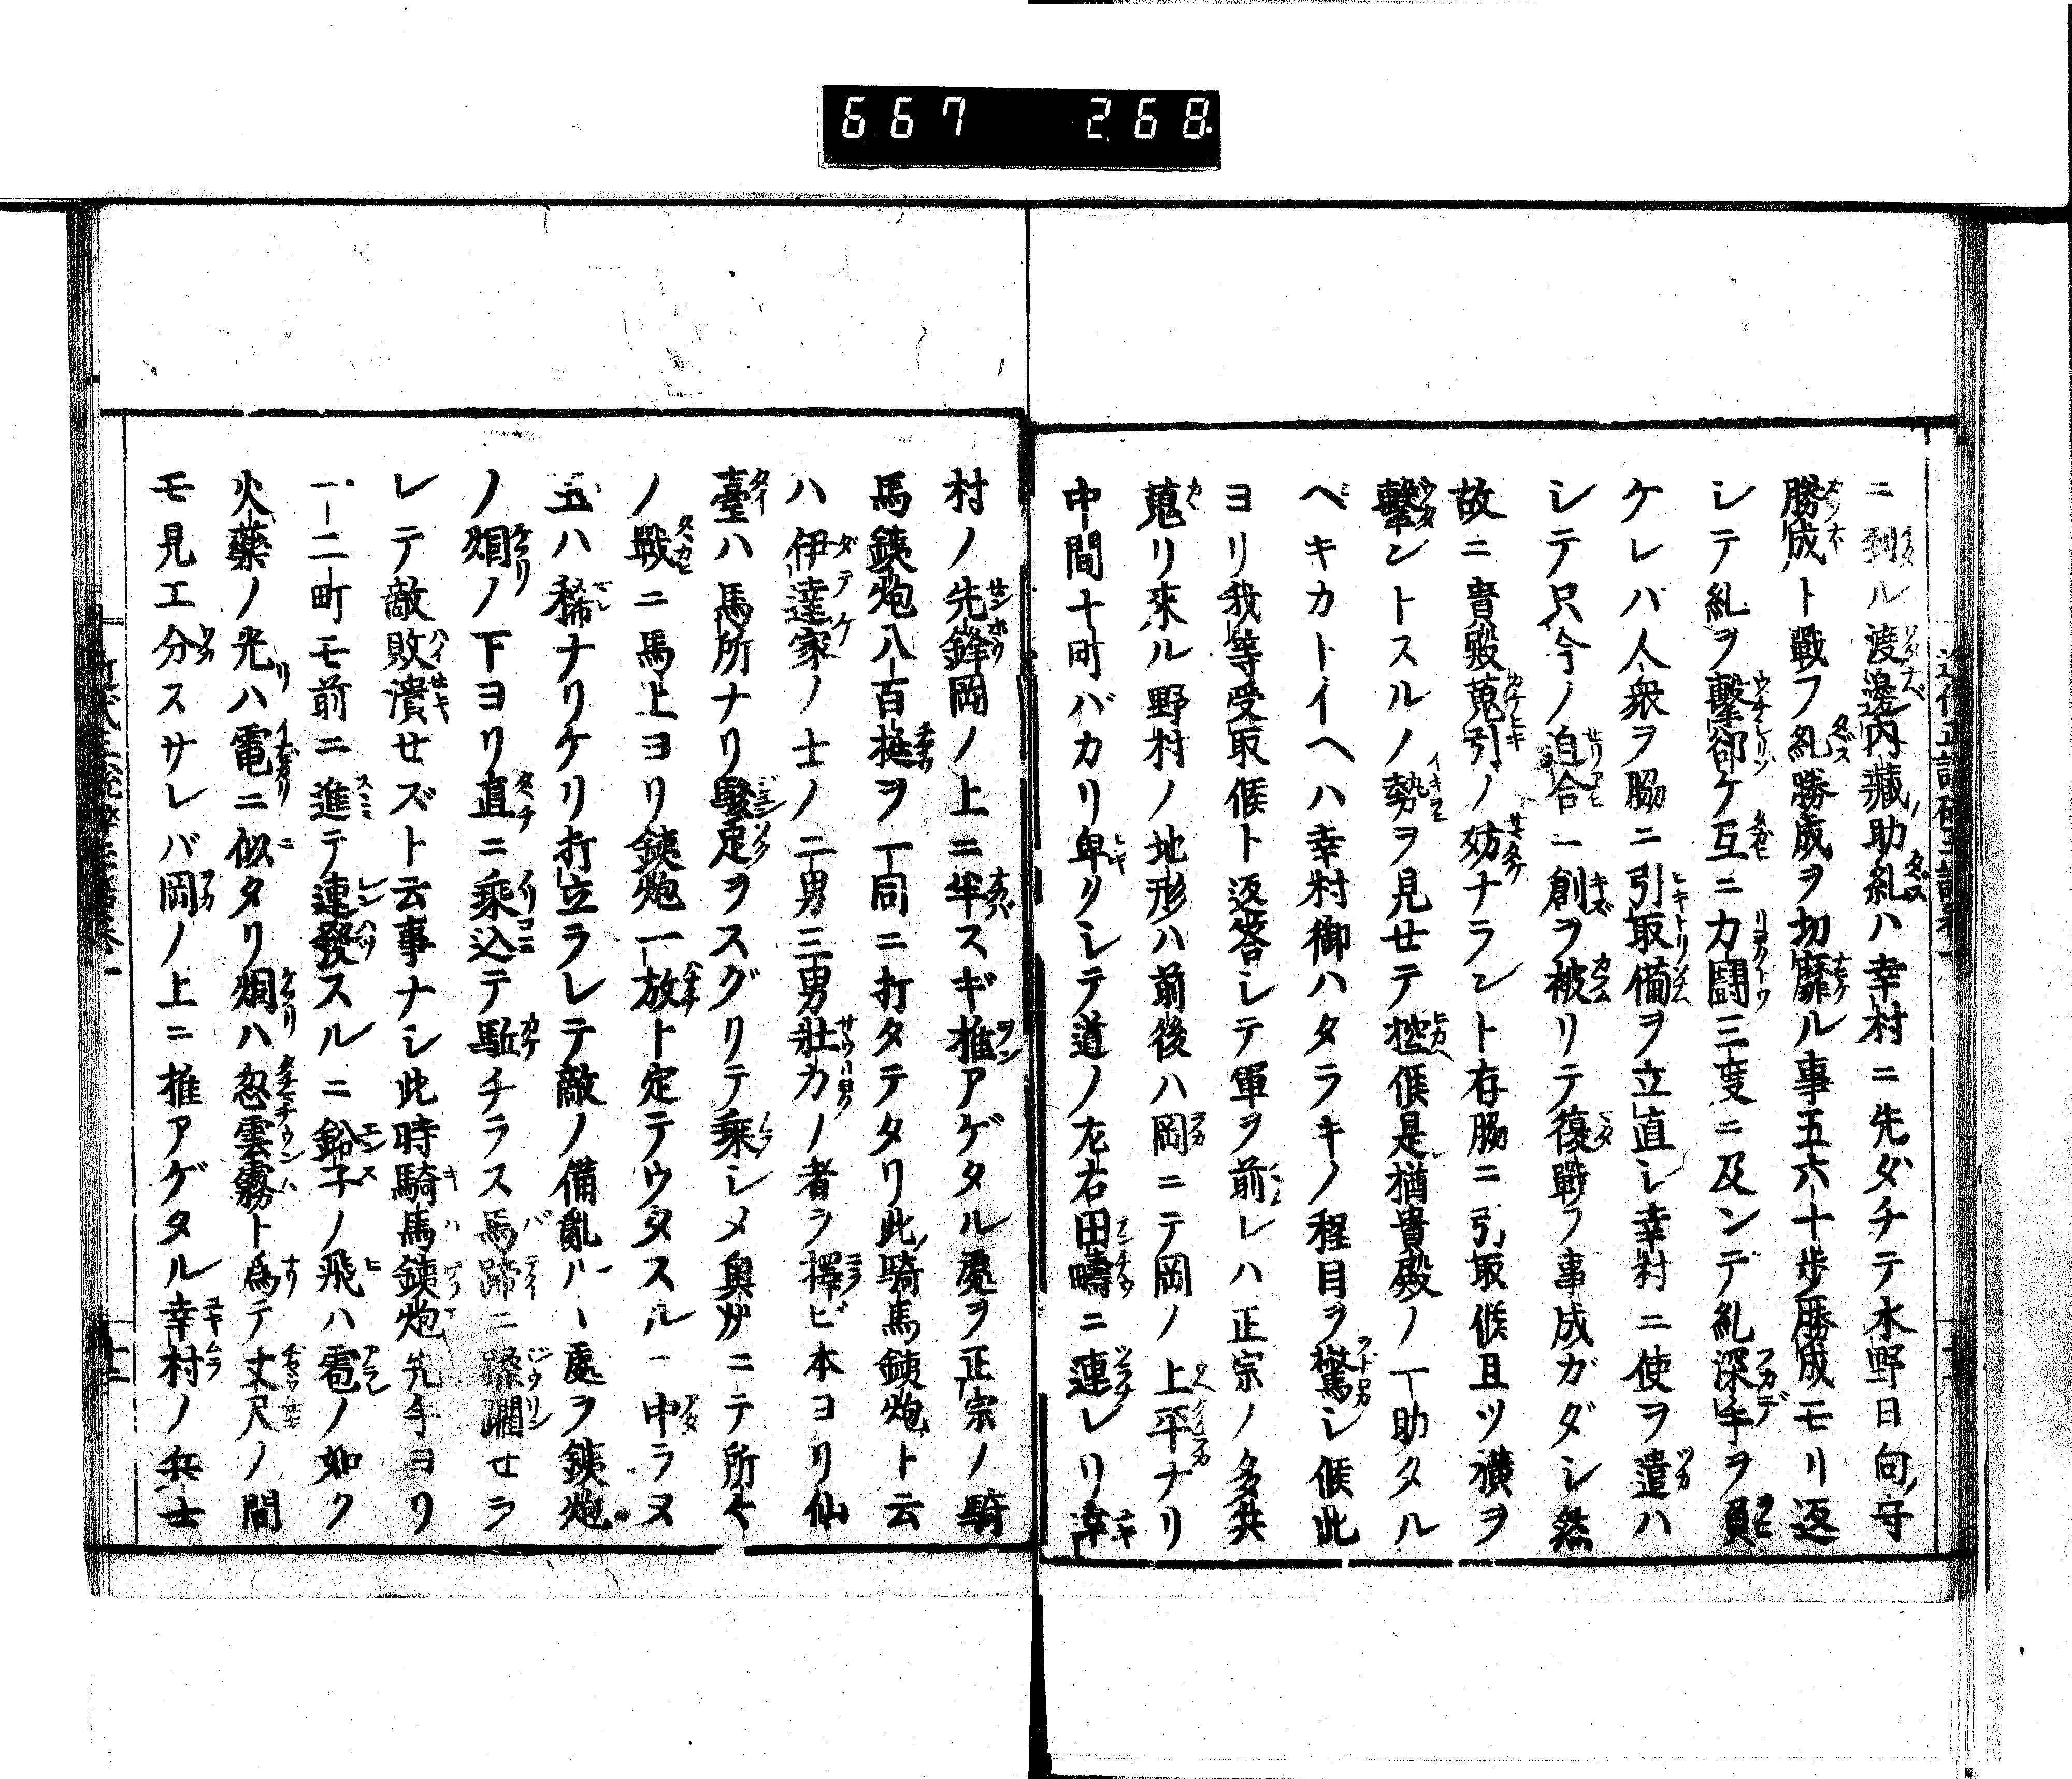 667 268.
ニ到ル渡邊内藏助糺ハ幸村ニ先ダチテ水野日向守
勝成ト戰フ糺勝成ヲ切靡ル事五六十歩勝成モリ返
シテ糺ヲ擊卻ケ互ニ力鬪三度ニ及ンデ糺深手ヲ負
ケレバ人衆ヲ脇ニ引取備ヲ立直シ幸村ニ使ヲ遣ハ
シテ只今ノ迫合ニ創ヲ被リテ復戰フ事成ガダシ然
故ニ貴殿蒐引ノ妨ナラント存脇ニ引取候且ツ横ヲ
擊ントスルノ勢ヲ見セテ控候是猶貴殿ノ一助タル
ベキカトイヘハ幸村御ハタラキノ程目ヲ驚シ候此
ヨリ我等受取候ト返答シテ軍ヲ前レハ正宗ノ多兵
蒐リ來ル野村ノ地形ハ前後ハ岡ニテ岡ノ上平ナリ
中間十町バカリ卑クシテ道ノ左右田疇ニ連レリ幸
村ノ先鋒岡ノ上ニ半スギ推アゲタル處ヲ正宗ノ騎
馬鉄炮八百挺ヲ一同ニ打タテタリ此騎馬鉄炮ト云
ハ伊達家ノ士ノ二男三男壯力ノ者ヲ擇ビ本ヨリ仙
臺ハ馬所ナリ駿足ヲスグリテ乘シメ奥ガニテ所々
ノ戰ニ馬上ヨリ鉄炮一放ト定テウタスルニ中ラヌ
玉ハ稀ナリケリ打立ラレテ敵ノ備亂ルヽ處ヲ鉄炮
ノ烟ノ下ヨリ直ニ乘込テ駈チラス馬蹄ニ蹂躙セラ
レテ敵敗潰セズト云事ナシ此時騎馬鉄炮先手ヨリ
一二町モ前ニ進テ連發スルニ鉛子ノ飛ハ雹ノ如ク
火藥ノ光ハ電ニ似タリ烟ハ忽雲霧ト爲テ丈尺ノ間
モ見エ分スサレバ岡ノ上ニ推アゲタル幸村ノ兵士